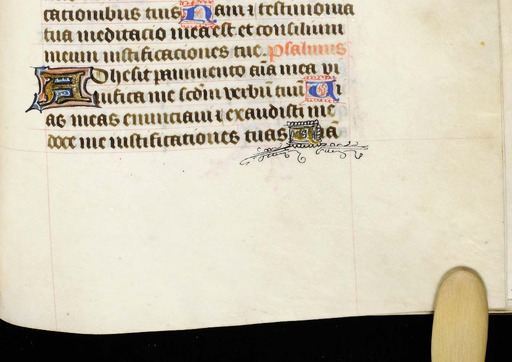 cationibus tuis Nam ⁊ testimonia
tua meditacio mea est et consilium
meum iustificaciones tue. psalmus
Adhesit pauimento aīa mea vi
uifica me scdm̄ verbū tuū Ui
as meas enunciaui ⁊ exaudisti me
doce me iustificationes tuas